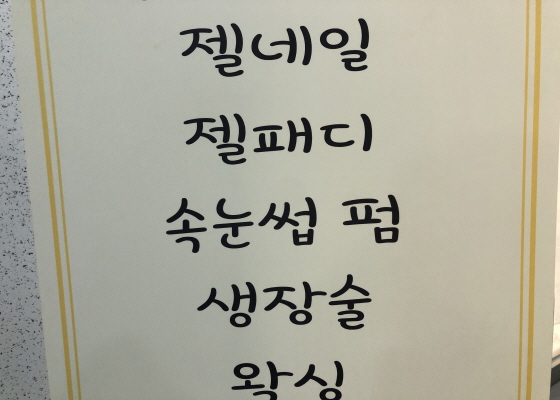 젤네일
젤패디
속눈썹 펌
생장술
왁싱